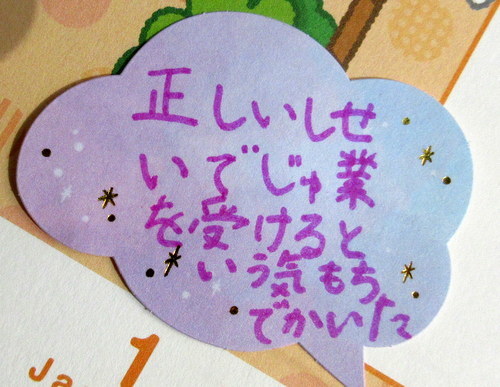 正しいしせ
いでじゅ業
を受けると
いう気もち
でかいた
1
Ja